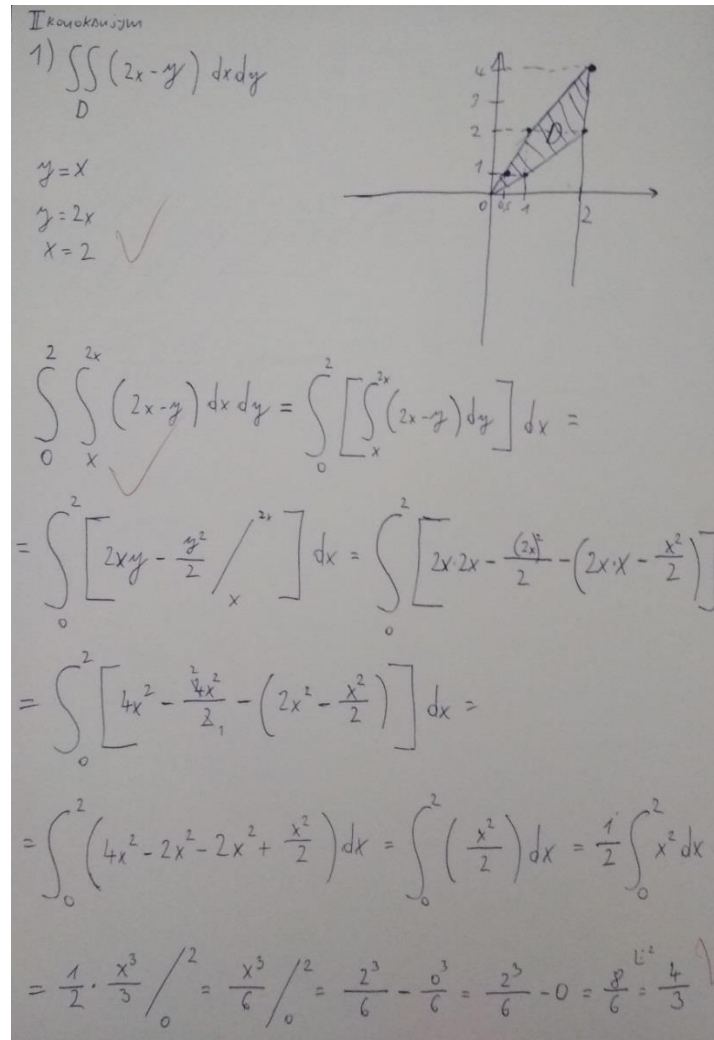 II колоквијум
1) ∬ (2x-y) dxdy
D
4
3
2
1
D
0 0,5 1 2
y = x
y = 2x
x = 2
∫₀² ∫ₓ²ˣ (2x-y) dx dy = ∫₀² [∫ₓ²ˣ (2x-y) dy] dx =
= ∫₀² [2xy - y²/2 /ₓ²ˣ] dx = ∫₀² [2x·2x - (2x)²/2 - (2x·x - x²/2)]
= ∫₀² [4x² - 4x²/2 - (2x² - x²/2)] dx =
= ∫₀² (4x² - 2x² - 2x² + x²/2) dx = ∫₀² (x²/2) dx = 1/2 ∫₀² x² dx
= 1/2 · x³/3 /₀² = x³/6 /₀² = 2³/6 - 0³/6 = 2³/6 - 0 = 8/6 = 4/3